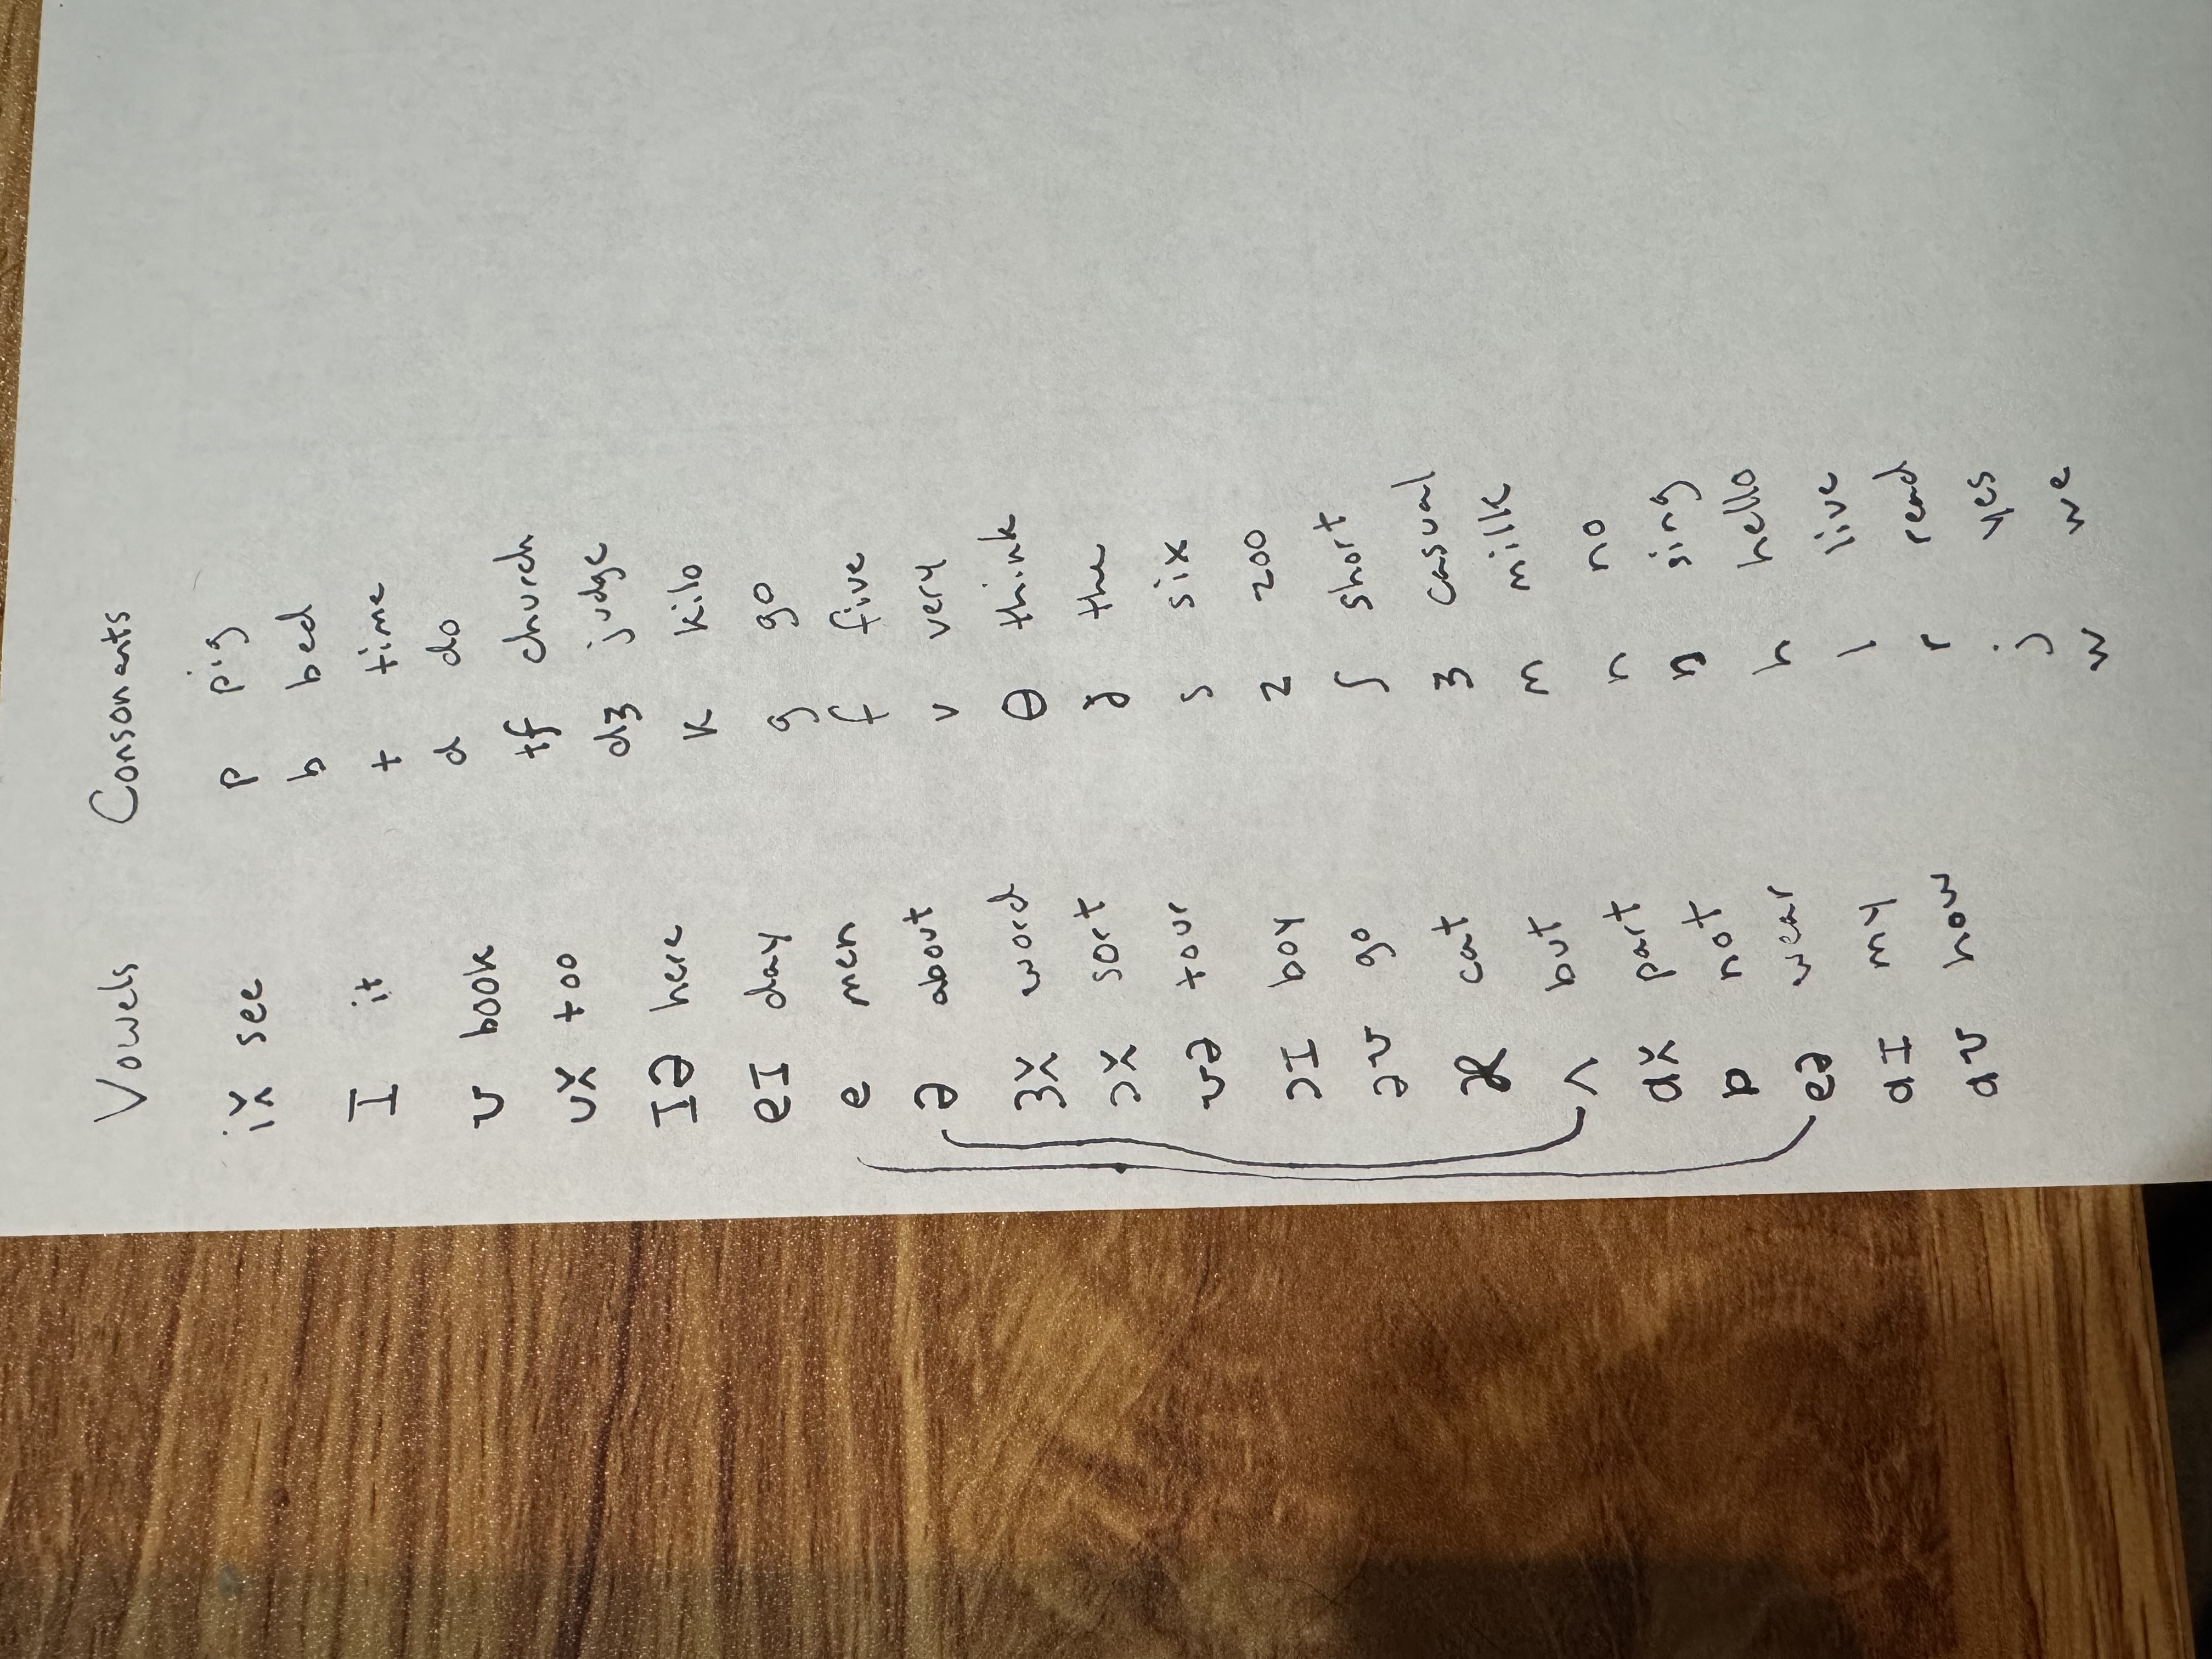 Vowels Consonants
iː see p pig
I it b bed
ʊ book t time
uː too d do
Iə here tf church
eI day dʒ judge
e men k kilo
ə about g go
ɜː word f five
ɔː sort v very
ʊə tour θ think
ɔI boy ð the
əʊ go s six
æ cat z zoo
ʌ but ʃ short
ɑː part ʒ casual
ɒ not m milk
eə wear n no
aI my ŋ sing
aʊ how h hello
l live
r read
j yes
w we